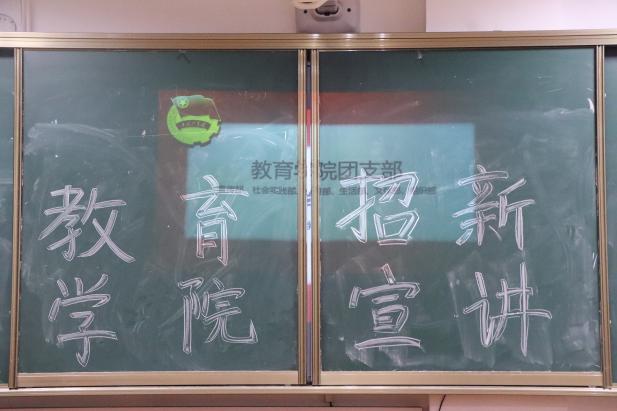 教育学院团支部
社会实践部
教育招新
学院宣讲